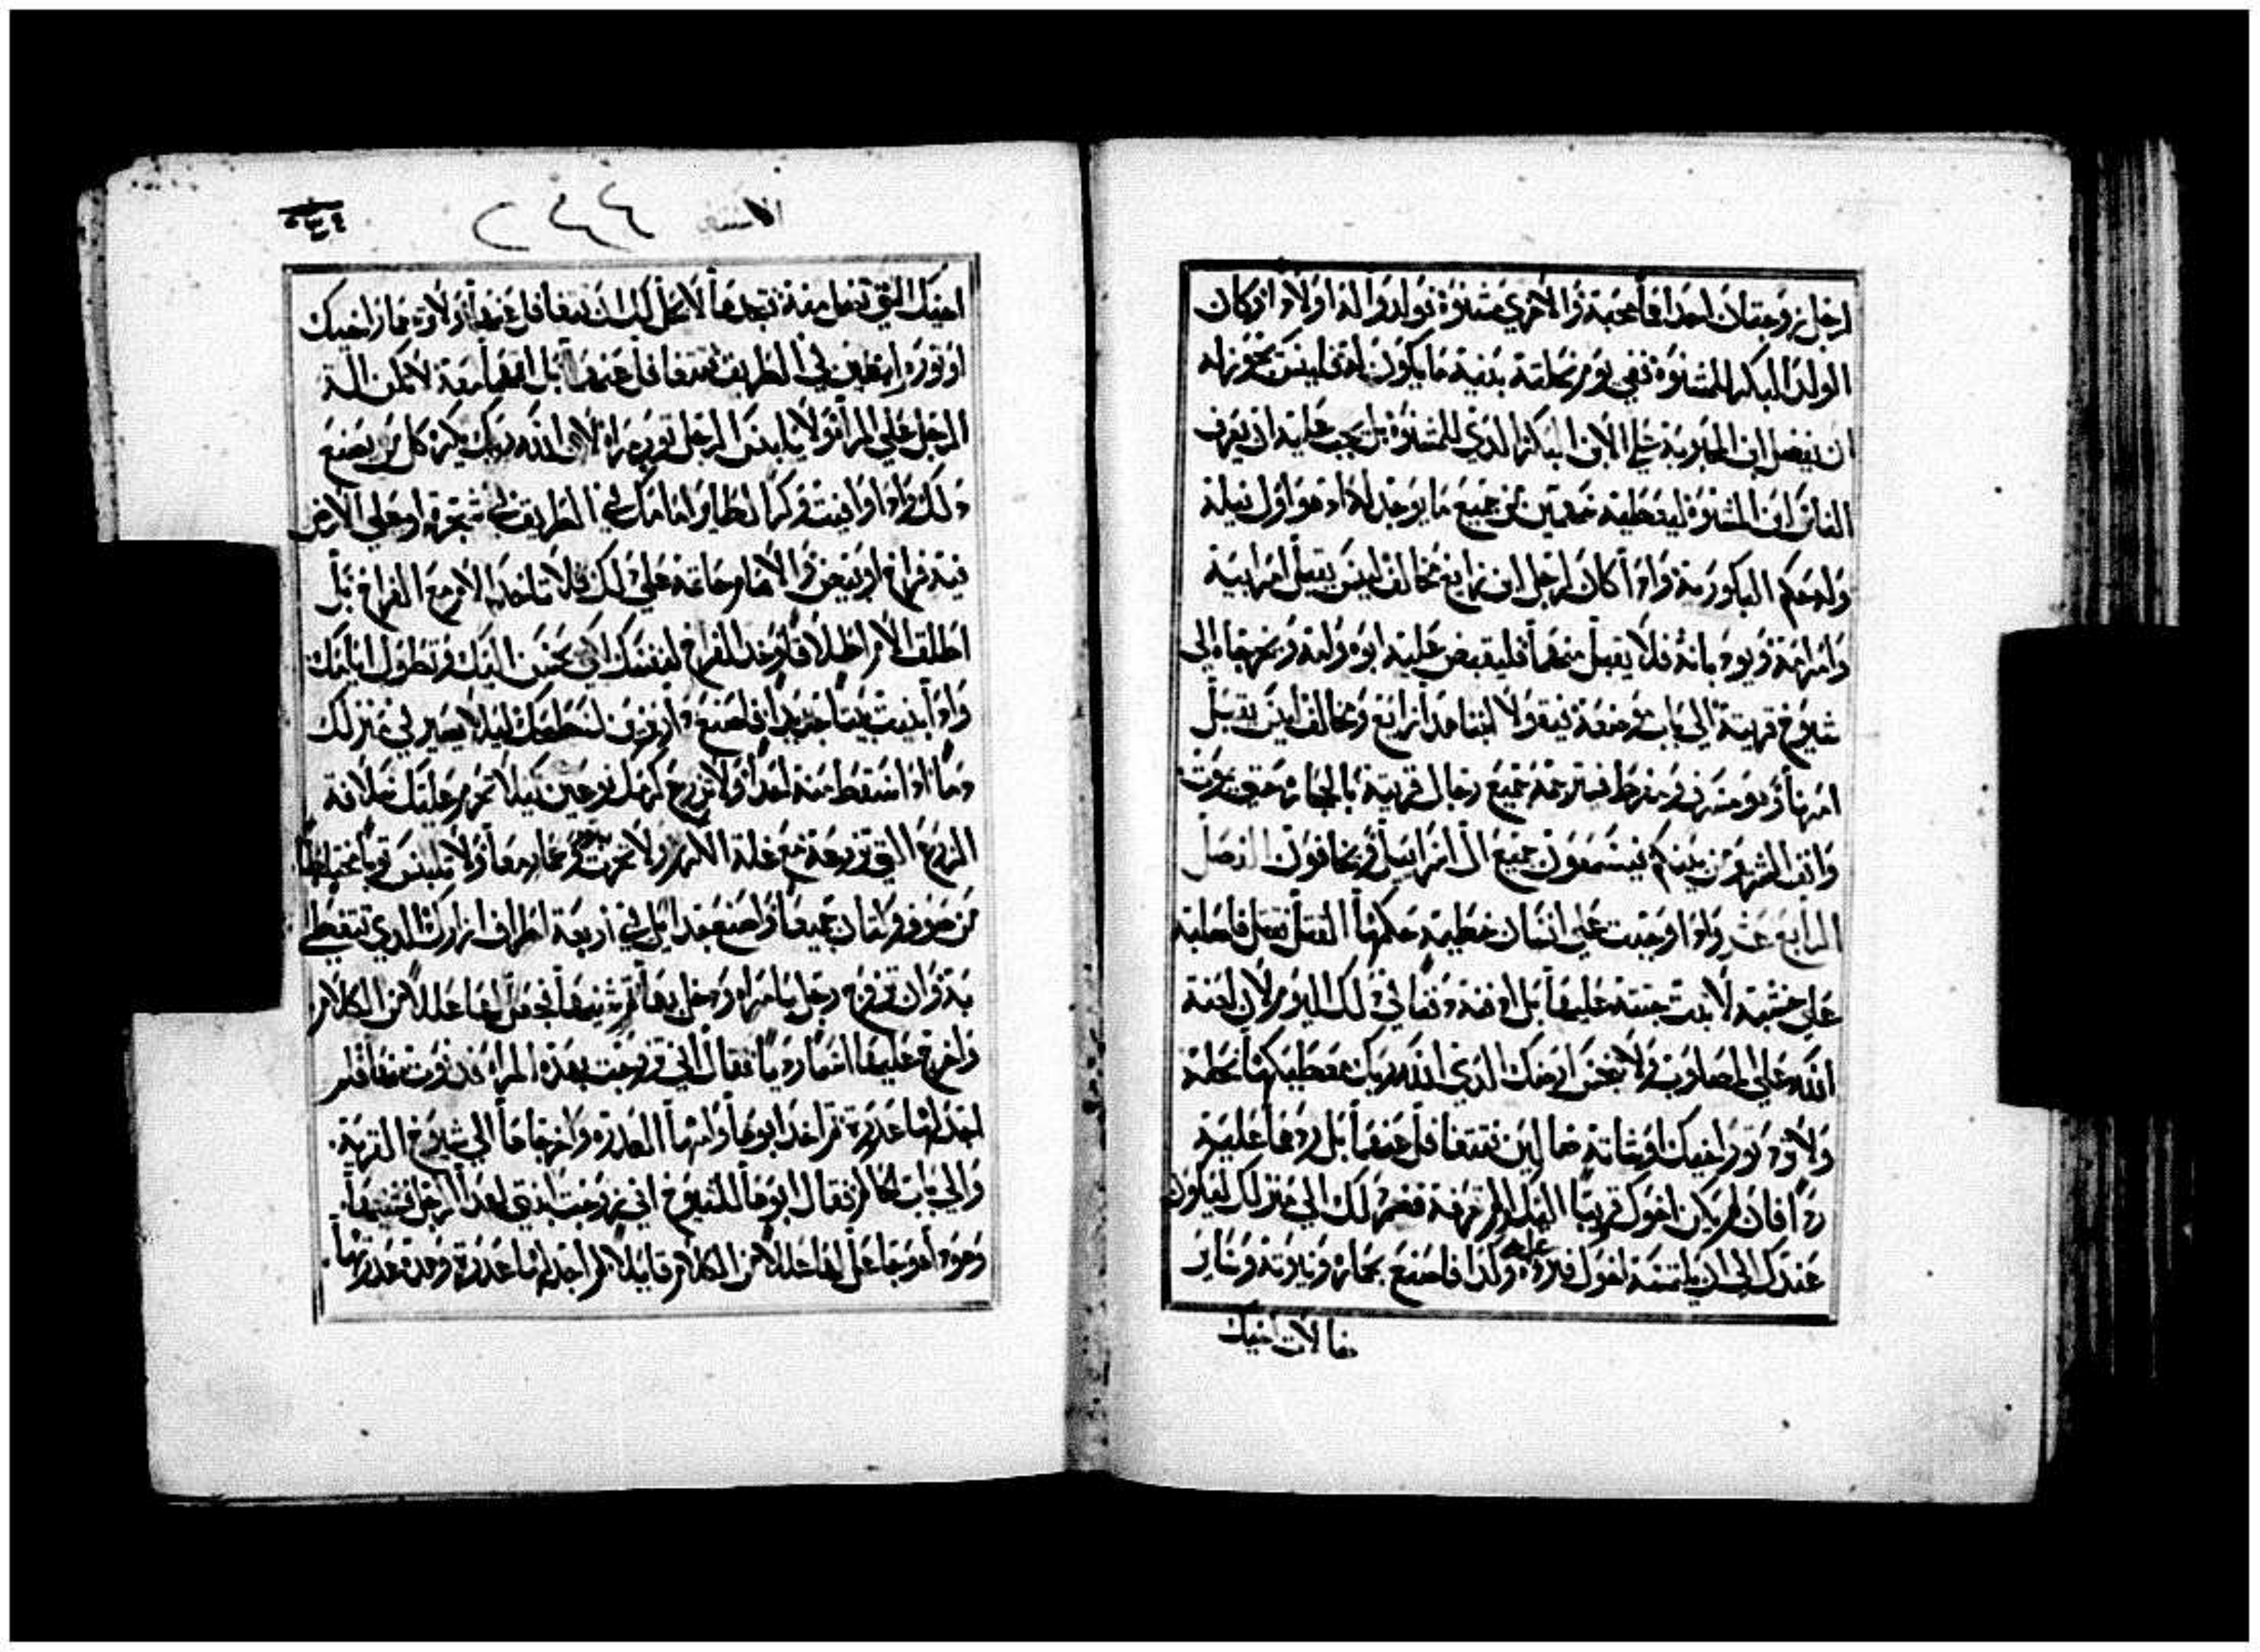 لرجل زوجتان احداهما محبة والاخري مشنوة فولدوا له اولاد اذ وكان
الولد البكر للمشنوة ففي يوم نحلته بنيه ما يكون له فليس يجوز له
ان يفضل ابن المحبوبة علي الابن البكر الذي للمشنوة بل يجب عليه ان يعرف
الناس ابن المشنوة ليعطيه سهمين من جميع ما يوجد له اذ هو اول نيله
وله حكم البكورية واذا كان لرجل ابن زايغ مخالف ليس يقبل امر ابيه
وامر امه ويودبانه فلا يقبل منهما فليقبض عليه ابوه وامه ويخرجاه الي
شيوخ قريته الي باب موضعه فيقولا ابننا هذا زايغ ومخالف ليس يقبل
امرنا وهو مسرف ومفرط فيرجمه جميع رجال قريته بالحجاره حتي يموت
وانف الشر من بينكم فيسمعون جميع ال اسراييل ويخافون الفصل
الرابع عشر واذا وجبت علي انسان خطيه حكمها القتل فقتل فاصلبه
علي خشبه لا تبت جثته عليها بل ادفنه دفنا في ذلك اليوم لان لعنة
الله علي المصلوب ولا تنجس ارضك الذي الله ربك معطيكها نحله
ولا تري ثور اخيك او شاته ضالين فتتغافل عنهما بل ردهما عليه
ردا فان لم يكن اخوك قريبا اليك او لم تعرفه فضم ذلك الي منزلك ليكون
عندك الي ان يلتمسه اخوك فترده عليه وكذا فاصنع بحماره وبثوبه وبساير
ضالات اخيك
الاستثنى ٢٤٤
اخيك التي تضل منه فتجدها لا يحل لك ان تتغافل عنها ولا تري حمار اخيك
او ثوره واقعين في الطريق فتتغافل عنهما بل اقمهما معه لا تكن الة
الرجل علي المراة ولا يلبس الرجل ثوب امراة لان الله ربك يكره كل من يصنع
ذلك واذا وافيت وكر الطاير امامك في الطريق في شجره او علي الارض
فيه فراخ او بيض والام حاضنه علي ذلك فلا تاخذ الام مع الفراخ بل
اطلق الام اطلاقا وخذ الفراخ لنفسك لكي يحسن اليك وتطول ايامك
واذا بنيت بيتا جديدا فاصنع درابزين لسطحك ليلا يصير في منزلك
دما اذا سقط منه احدا ولا تزرع كرمك نوعين كيلا تحرم عليك سلافة
الزرع التي تزرعه مع غلة الكرم ولا تحرث بثور وحمار معا ولا تلبس ثوبا مختلطا
من صوف وكتان جميعا واصنع جدايل في اربعة اطراف ازارك الذي تتغطي
به وان تزوج رجل بامراه ودخل بها ثم شنيها فجعل لها عللا من الكلام
واخرج عليها اسما رديا فقال اني تزوجت بهذه المراه فدنوت منها فلم
اجد لها عذرة ثم اخذ ابوها وامها العذره واخرجاها الي شيوخ القرية
والي باب الحاكم فقال ابوها للشيوخ اني زوجت ابنتي لهذا الرجل فشنيها
وهوذا هو جاعل لها عللا من الكلام قايلا لم اجد لها عذرة وهذه عذرتها